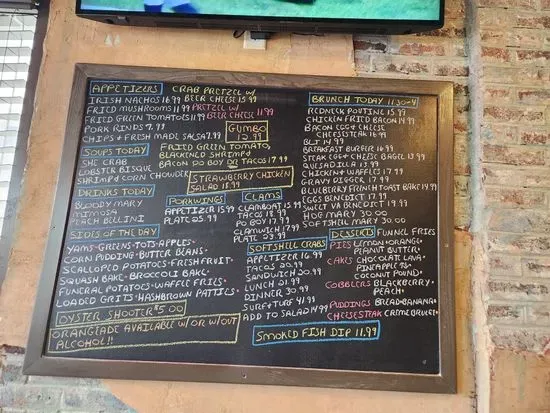 APPETIZERS CRAB PRETZEL W/
IRISH NACHOS 16.99 BEER CHEESE 15.99
FRIED MUSHROOMS 11.99 PRETZEL W/
FRIED GREEN TOMATOES 11.99 BEER CHEESE 11.99
PORK RINDS 7.99
CHIPS & FRESH MADE SALSA 7.99
GUMBO
12.99
SOUPS TODAY
SHE CRAB
LOBSTER BISQUE
SHRIMP & CORN CHOWDER
FRIED GREEN TOMATO,
BLACKENED SHRIMP &
BACON PO BOY OR TACOS 17.99
STRAWBERRY CHICKEN
SALAD 18.99
DRINKS TODAY
BLOODY MARY
MIMOSA
PEACH BELLINI
PORKWINGS
APPETIZER 15.99
PLATE 25.99
CLAMS
CLAMBOAT 15.99
TACO 18.99
PO BOY 17.99
CLAMWICH 17.99
PLATE 23.99
SIDES OF THE DAY
YAMS-GREENS-TOTS-APPLES-
CORN PUDDING-BUTTER BEANS-
SCALLOPED POTATOES-FRESH FRUIT-
SQUASH BAKE-BROCCOLI BAKE-
FUNERAL POTATOES-WAFFLE FRIES-
LOADED GRITS-HASHBROWN PATTIES-
SOFTSHELL CRABS
APPETIZER 16.99
TACOS 20.99
SANDWICH 20.99
LUNCH 21.99
DINNER 30.99
SURF & TURF 41.99
ADD TO SALAD 14.99
OYSTER SHOOTER $5.00
ORANGEADE AVAILABLE W/ OR W/OUT
ALCOHOL!!
BRUNCH TODAY 11:30-4
REDNECK POUTINE 15.99
CHICKEN FRIED BACON 14.99
BACON EGG & CHEESE
CHEESESTEAK 16.99
BLT 14.99
BREAKFAST BURGER 16.99
STEAK EGG & CHEESE BAGEL 13.99
QUESADILLA 13.99
CHICKEN & WAFFLES 17.99
GRAVY DIGGER 17.99
BLUEBERRY FRENCH TOAST BAKE 14.99
EGGS BENEDICT 17.99
SWEET VA BENEDICT 19.99
HOG MARY 30.00
SOFTSHELL MARY 30.00
DESSERTS FUNNEL FRIES
PIES LEMON-ORANGE-
PEANUT BUTTER
CAKES CHOCOLATE LAVA
PINEAPPLE
COCONUT POUND
COBBLERS BLACKBERRY
PEACH
PUDDINGS BREAD-BANANA-
CHEESESTEAK CREME BRULEE-
SMOKED FISH DIP 11.99